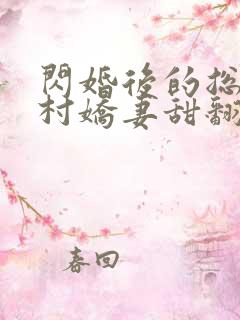 閃婚後的总
村嬌妻甜翻
春回